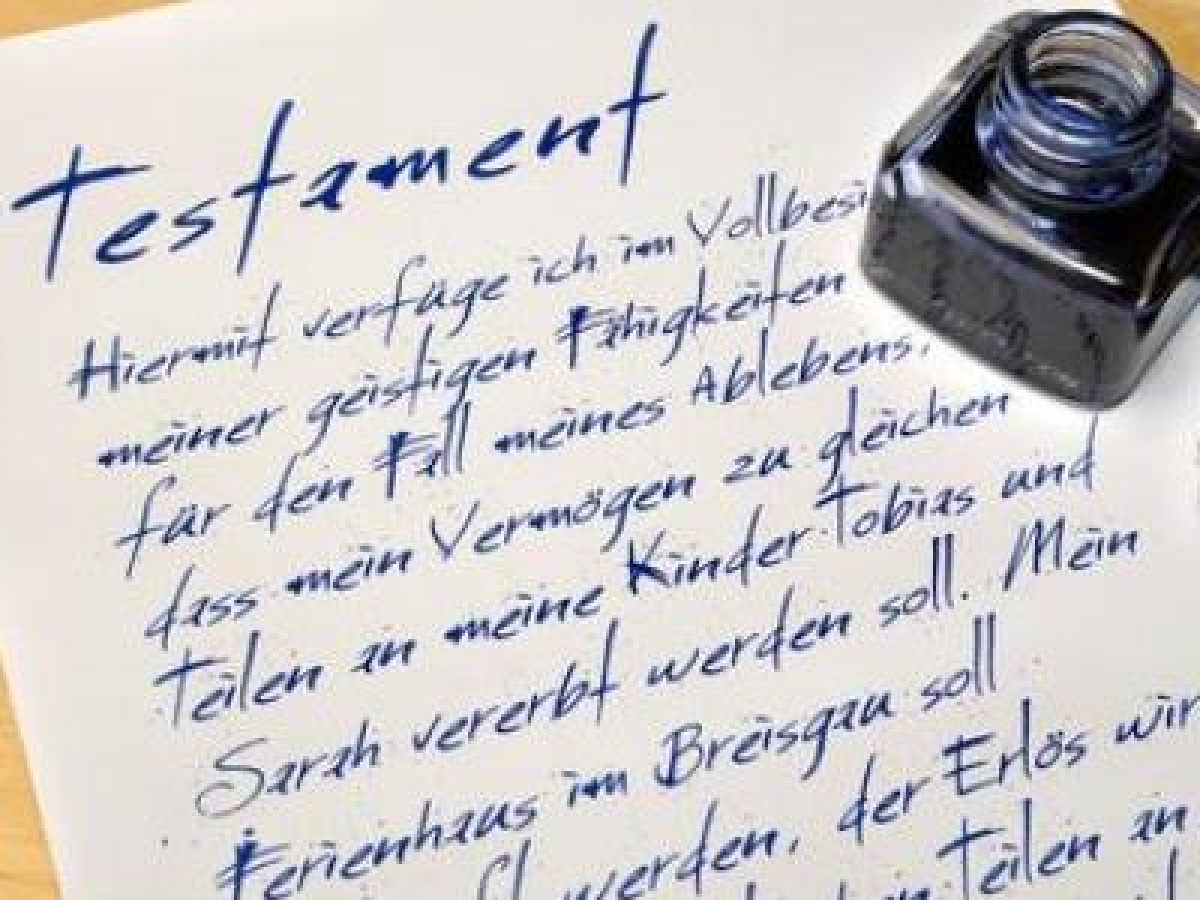 Testament
Hiermit verfüge ich im Vollbesi
meiner geistigen Fähigkeiten
für den Fall meines Ablebens,
dass mein Vermögen zu gleichen
Teilen an meine Kinder Tobias und
Sarah vererbt werden soll. Mein
Ferienhaus im Breisgau soll
werden, der Erlös wir
Teilen an